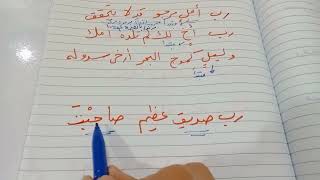 رب أملٍ مرجو قد لا يتحقق
رب أخٍ لك لم تلده أمك
وليلٍ كموج البحر أرخى سدوله
مبتدأ
رب صديقٍ عظيم صاحبْتَ